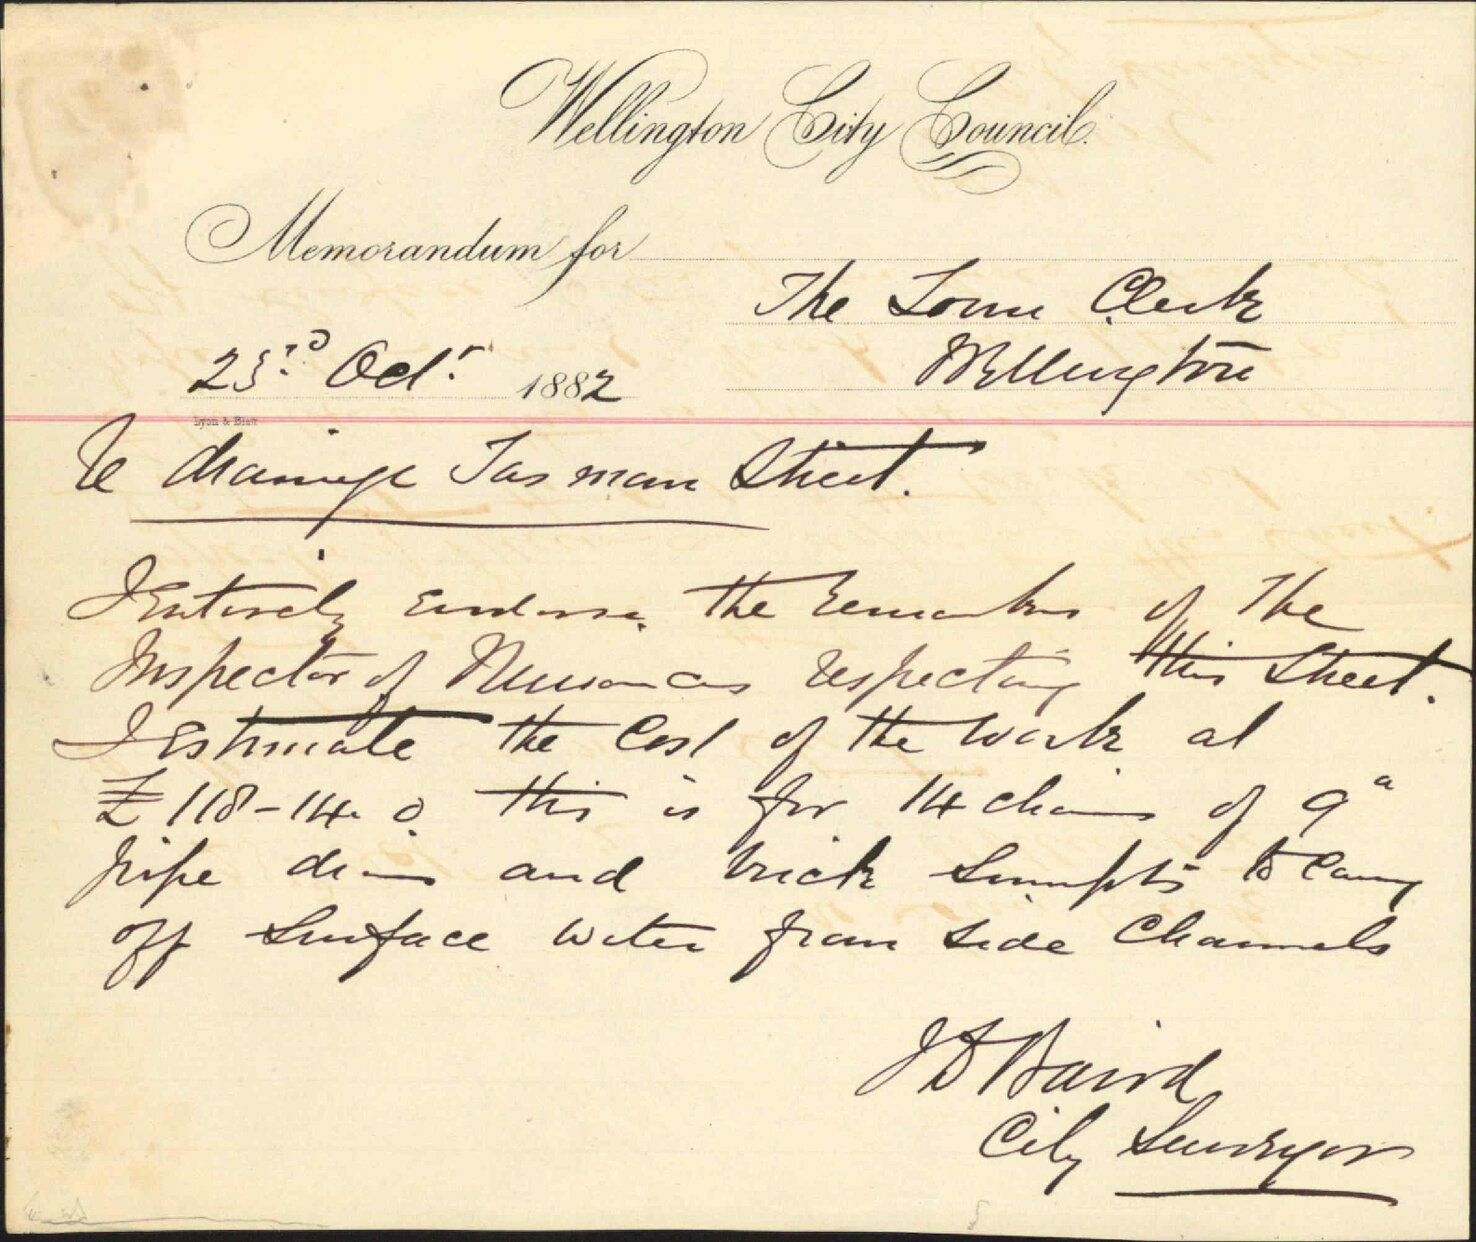 Wellington City Council.
Memorandum for
The Town Clerk
Wellington
23rd Octr. 1882
Lyon & Blair
Re drainage Tasman Street.
I Entirely endorse the remarks of the
Inspector of Nuisances respecting this Street.
I Estimate the Cost of the Work at
£118-14.0. this is for 14 chains of 9"
pipe drain and brick Sumpts to Carry
off Surface water from side Channels
J D Baird
City Surveyor